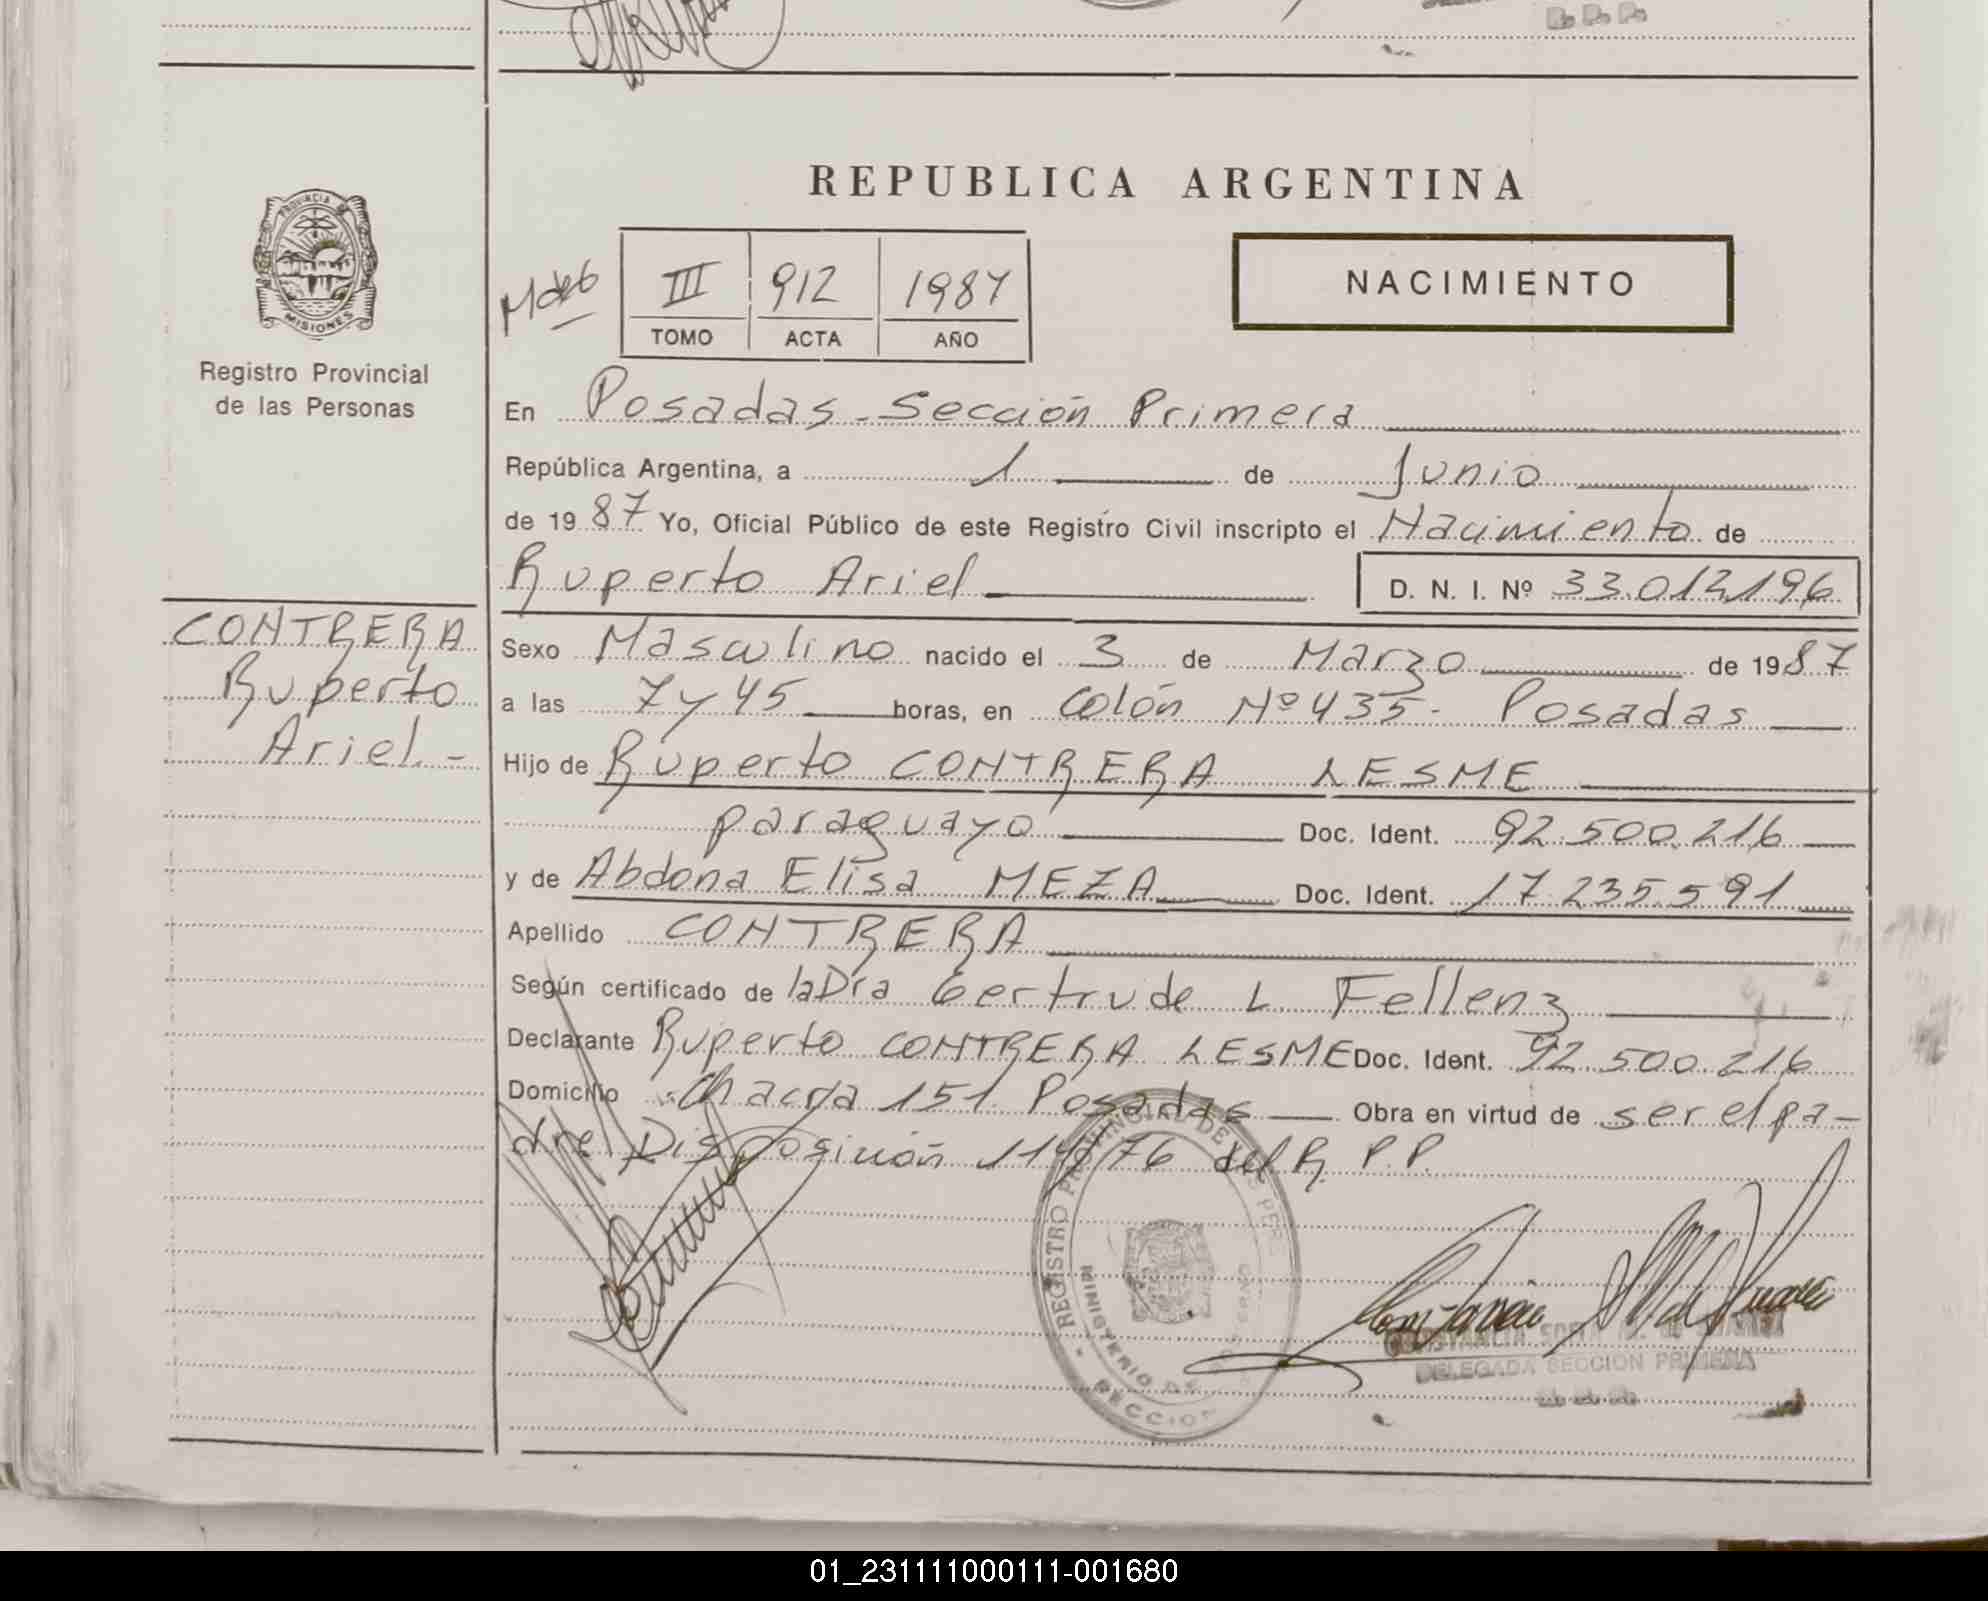 R. P. P.
PROVINCIA DE
MISIONES
Registro Provincial
de las Personas
CONTRERA
Ruperto
Ariel.-
REPUBLICA ARGENTINA
III 912 1987
TOMO ACTA AÑO
NACIMIENTO
En Posadas - Sección Primera
República Argentina, a 1 de Junio
de 1987 Yo, Oficial Público de este Registro Civil inscripto el Nacimiento de
Ruperto Ariel D. N. I. Nº 33.012.196
Sexo Masculino nacido el 3 de Marzo de 1987
a las 7 y 45 horas, en Colón Nº 435 - Posadas
Hijo de Ruperto CONTRERA LESME
paraguayo Doc. Ident. 92.500.216
y de Abdona Elisa MEZA Doc. Ident. 17.235.591
Apellido CONTRERA
Según certificado de la Dra Gertrude L. Fellenz
Declarante Ruperto CONTRERA LESME Doc. Ident. 92.500.216
Domicilio Chacra 151 Posadas Obra en virtud de ser el pa-
dre Disposición 114/76 del R. P. P.
REGISTRO PROVINCIAL DE LAS PERS
MINISTERIO DE
SECCION
CONSTANCIA SOFIA M. de SUAREZ
DELEGADA SECCION PRIMERA
R. P. P.
01_231111000111-001680